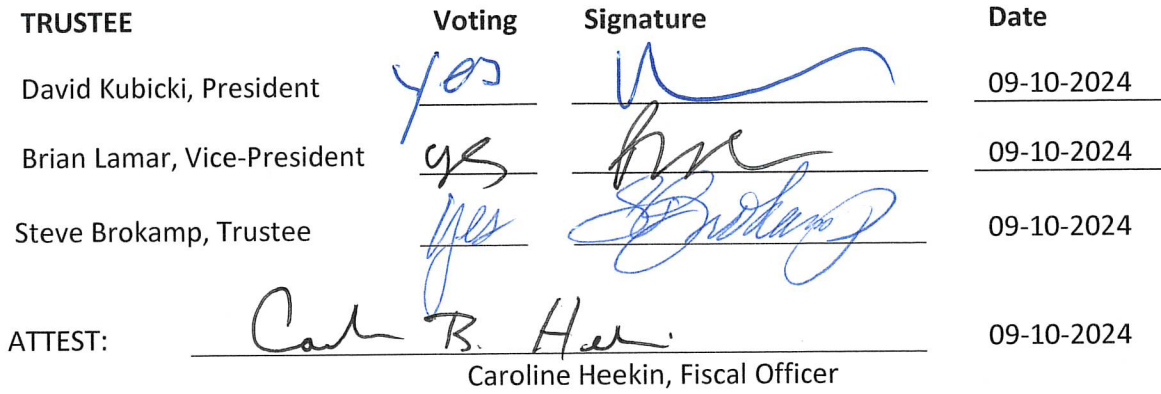 TRUSTEE Voting Signature Date
David Kubicki, President yes 09-10-2024
Brian Lamar, Vice-President yes 09-10-2024
Steve Brokamp, Trustee yes S Brokamp 09-10-2024
ATTEST: B. 09-10-2024
Caroline Heekin, Fiscal Officer